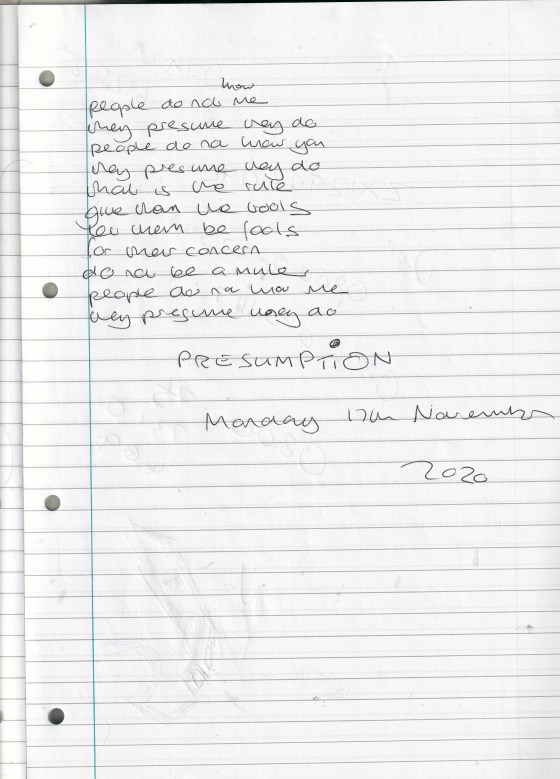 know
people do not me
they presume they do
people do not know you
they presume they do
what is the rule
give them the tools
let them be fools
for their concern
do not be a mule,
people do not know me
they presume they do
PRESUMPTION
Monday 17th November
2020